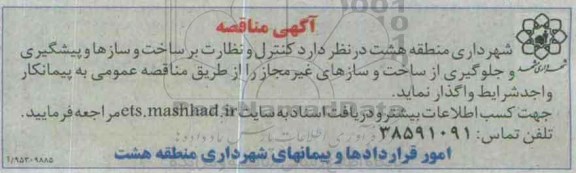 آگهی مناقصه
شهرداری منطقه هشت در نظر دارد کنترل و نظارت بر ساخت و سازها و پیشگیری
و جلوگیری از ساخت و سازهای غیرمجاز را از طریق مناقصه عمومی به پیمانکار
واجد شرایط واگذار نماید.
جهت کسب اطلاعات بیشتر و دریافت اسناد به سایت ets.mashhad.ir مراجعه فرمایید.
تلفن تماس: ۳۸۵۹۱۰۹۱
امور قراردادها و پیمانهای شهرداری منطقه هشت